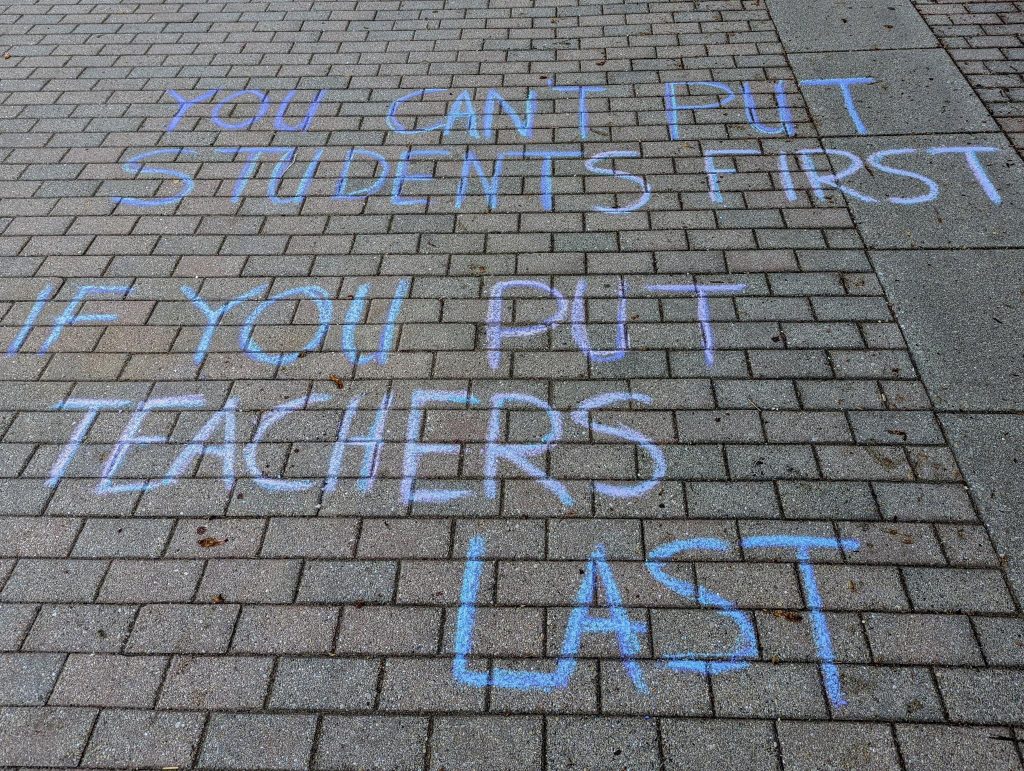 YOU CAN'T PUT
STUDENTS FIRST
IF YOU PUT
TEACHERS
LAST